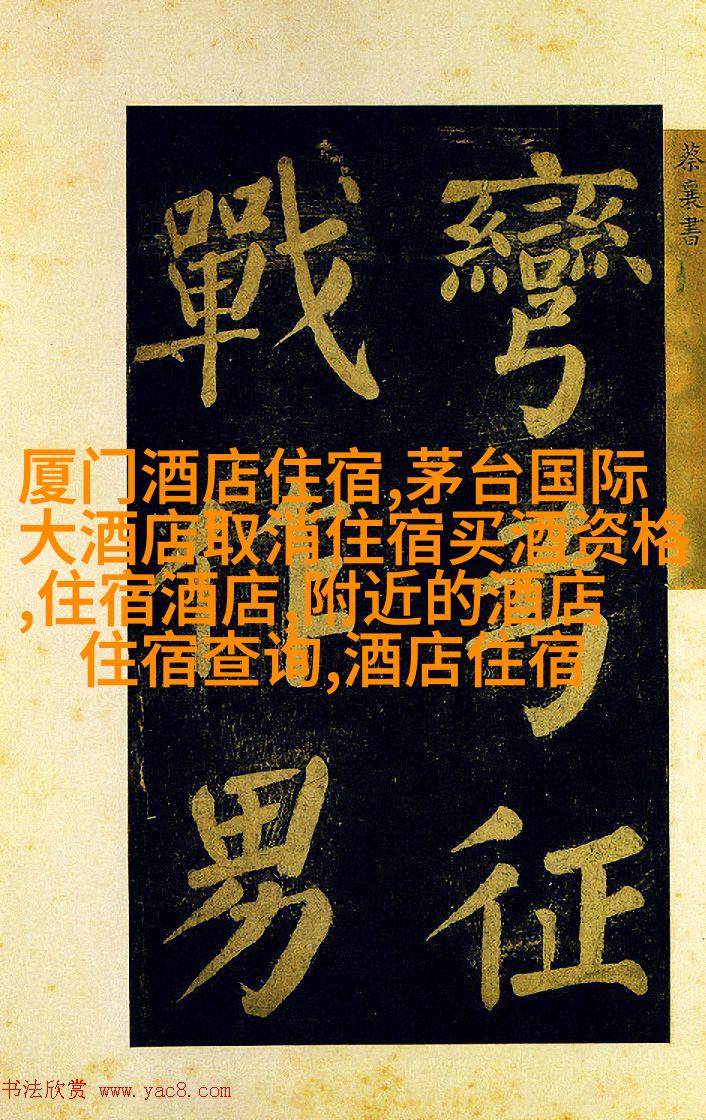 蔡襄書
彎弓征
戰作男
厦门酒店住宿,茅台国际
大酒店取消住宿买酒资格
,住宿酒店,附近的酒店
住宿查询,酒店住宿
书法欣赏 www.yac8.com